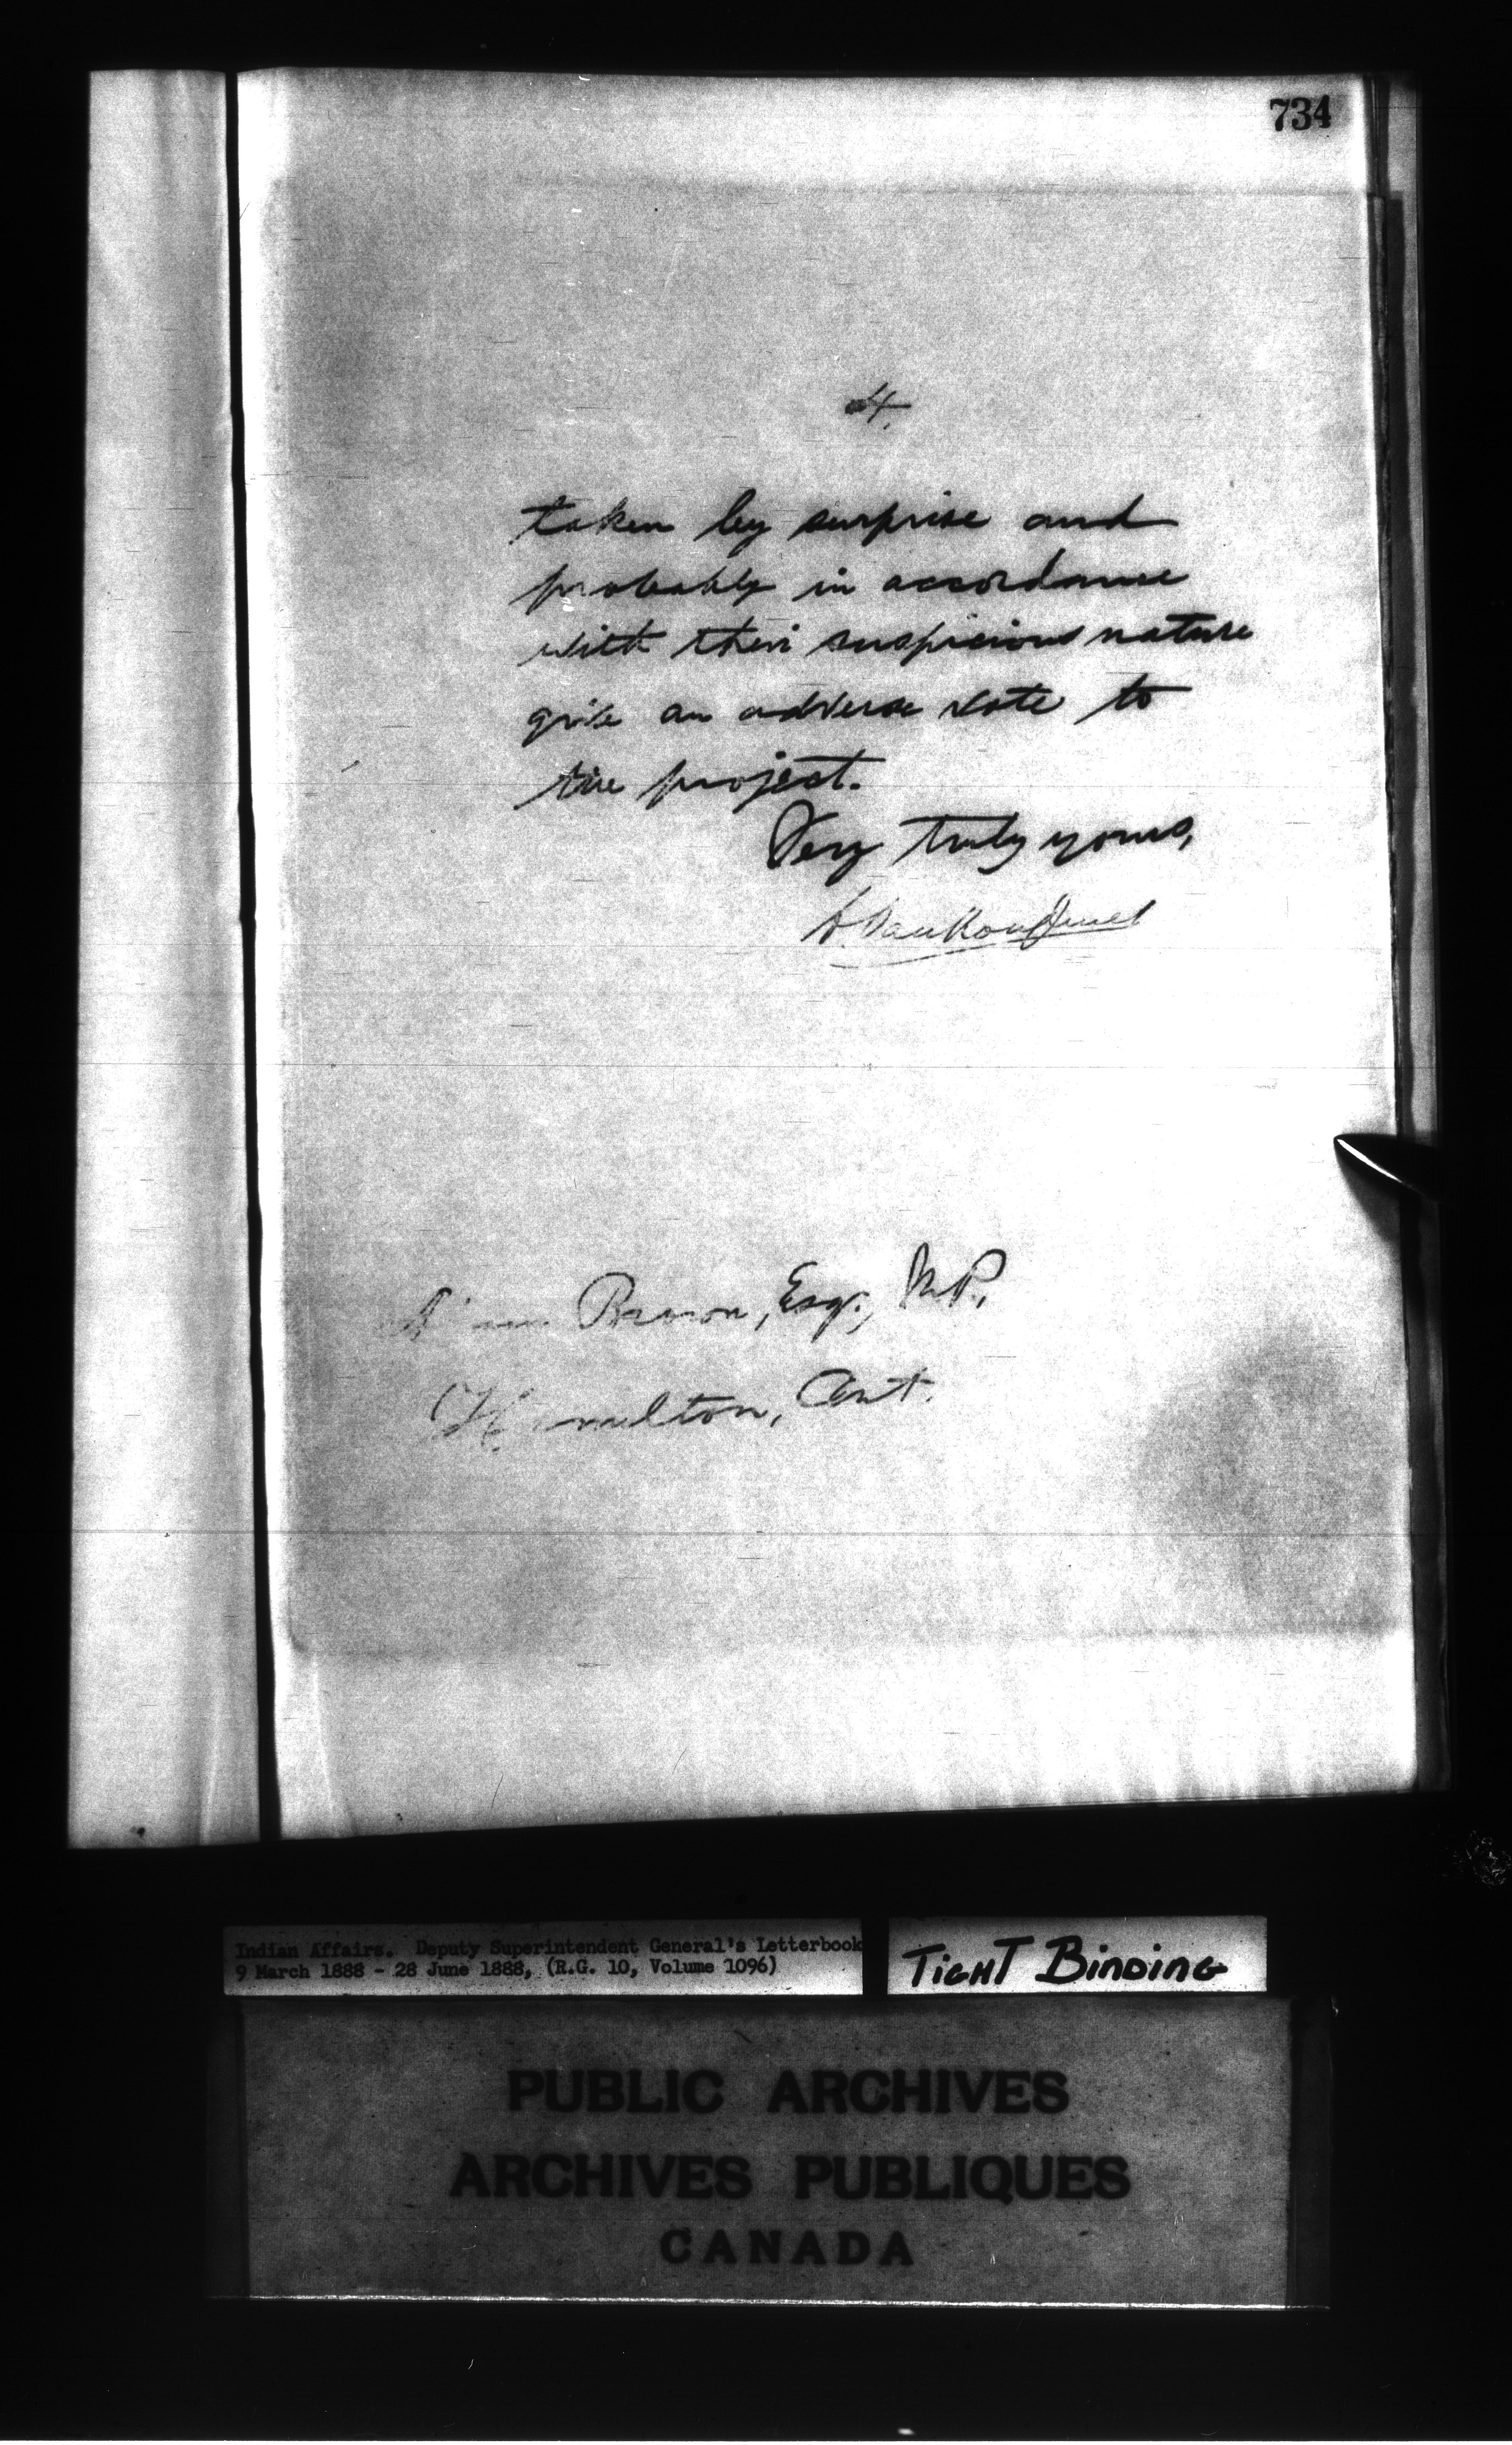 734
4.
taken by surprise and
probably in accordance
with their suspicious nature
give an adverse vote to
the project.
Very truly yours,
L. VanKoughnet
Brown, Esq., M.P.,
Hamilton, Ont.
Indian Affairs. Deputy Superintendent General's Letterbook
9 March 1888 - 28 June 1888, (R.G. 10, Volume 1096)
TIGHT BINDING
PUBLIC ARCHIVES
ARCHIVES PUBLIQUES
CANADA